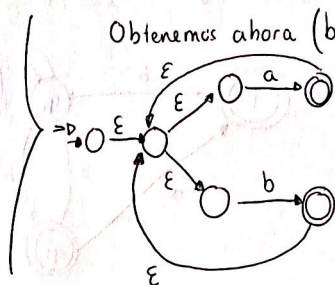 Obtenemos ahora (b
ε
ε a
ε
ε
b
ε